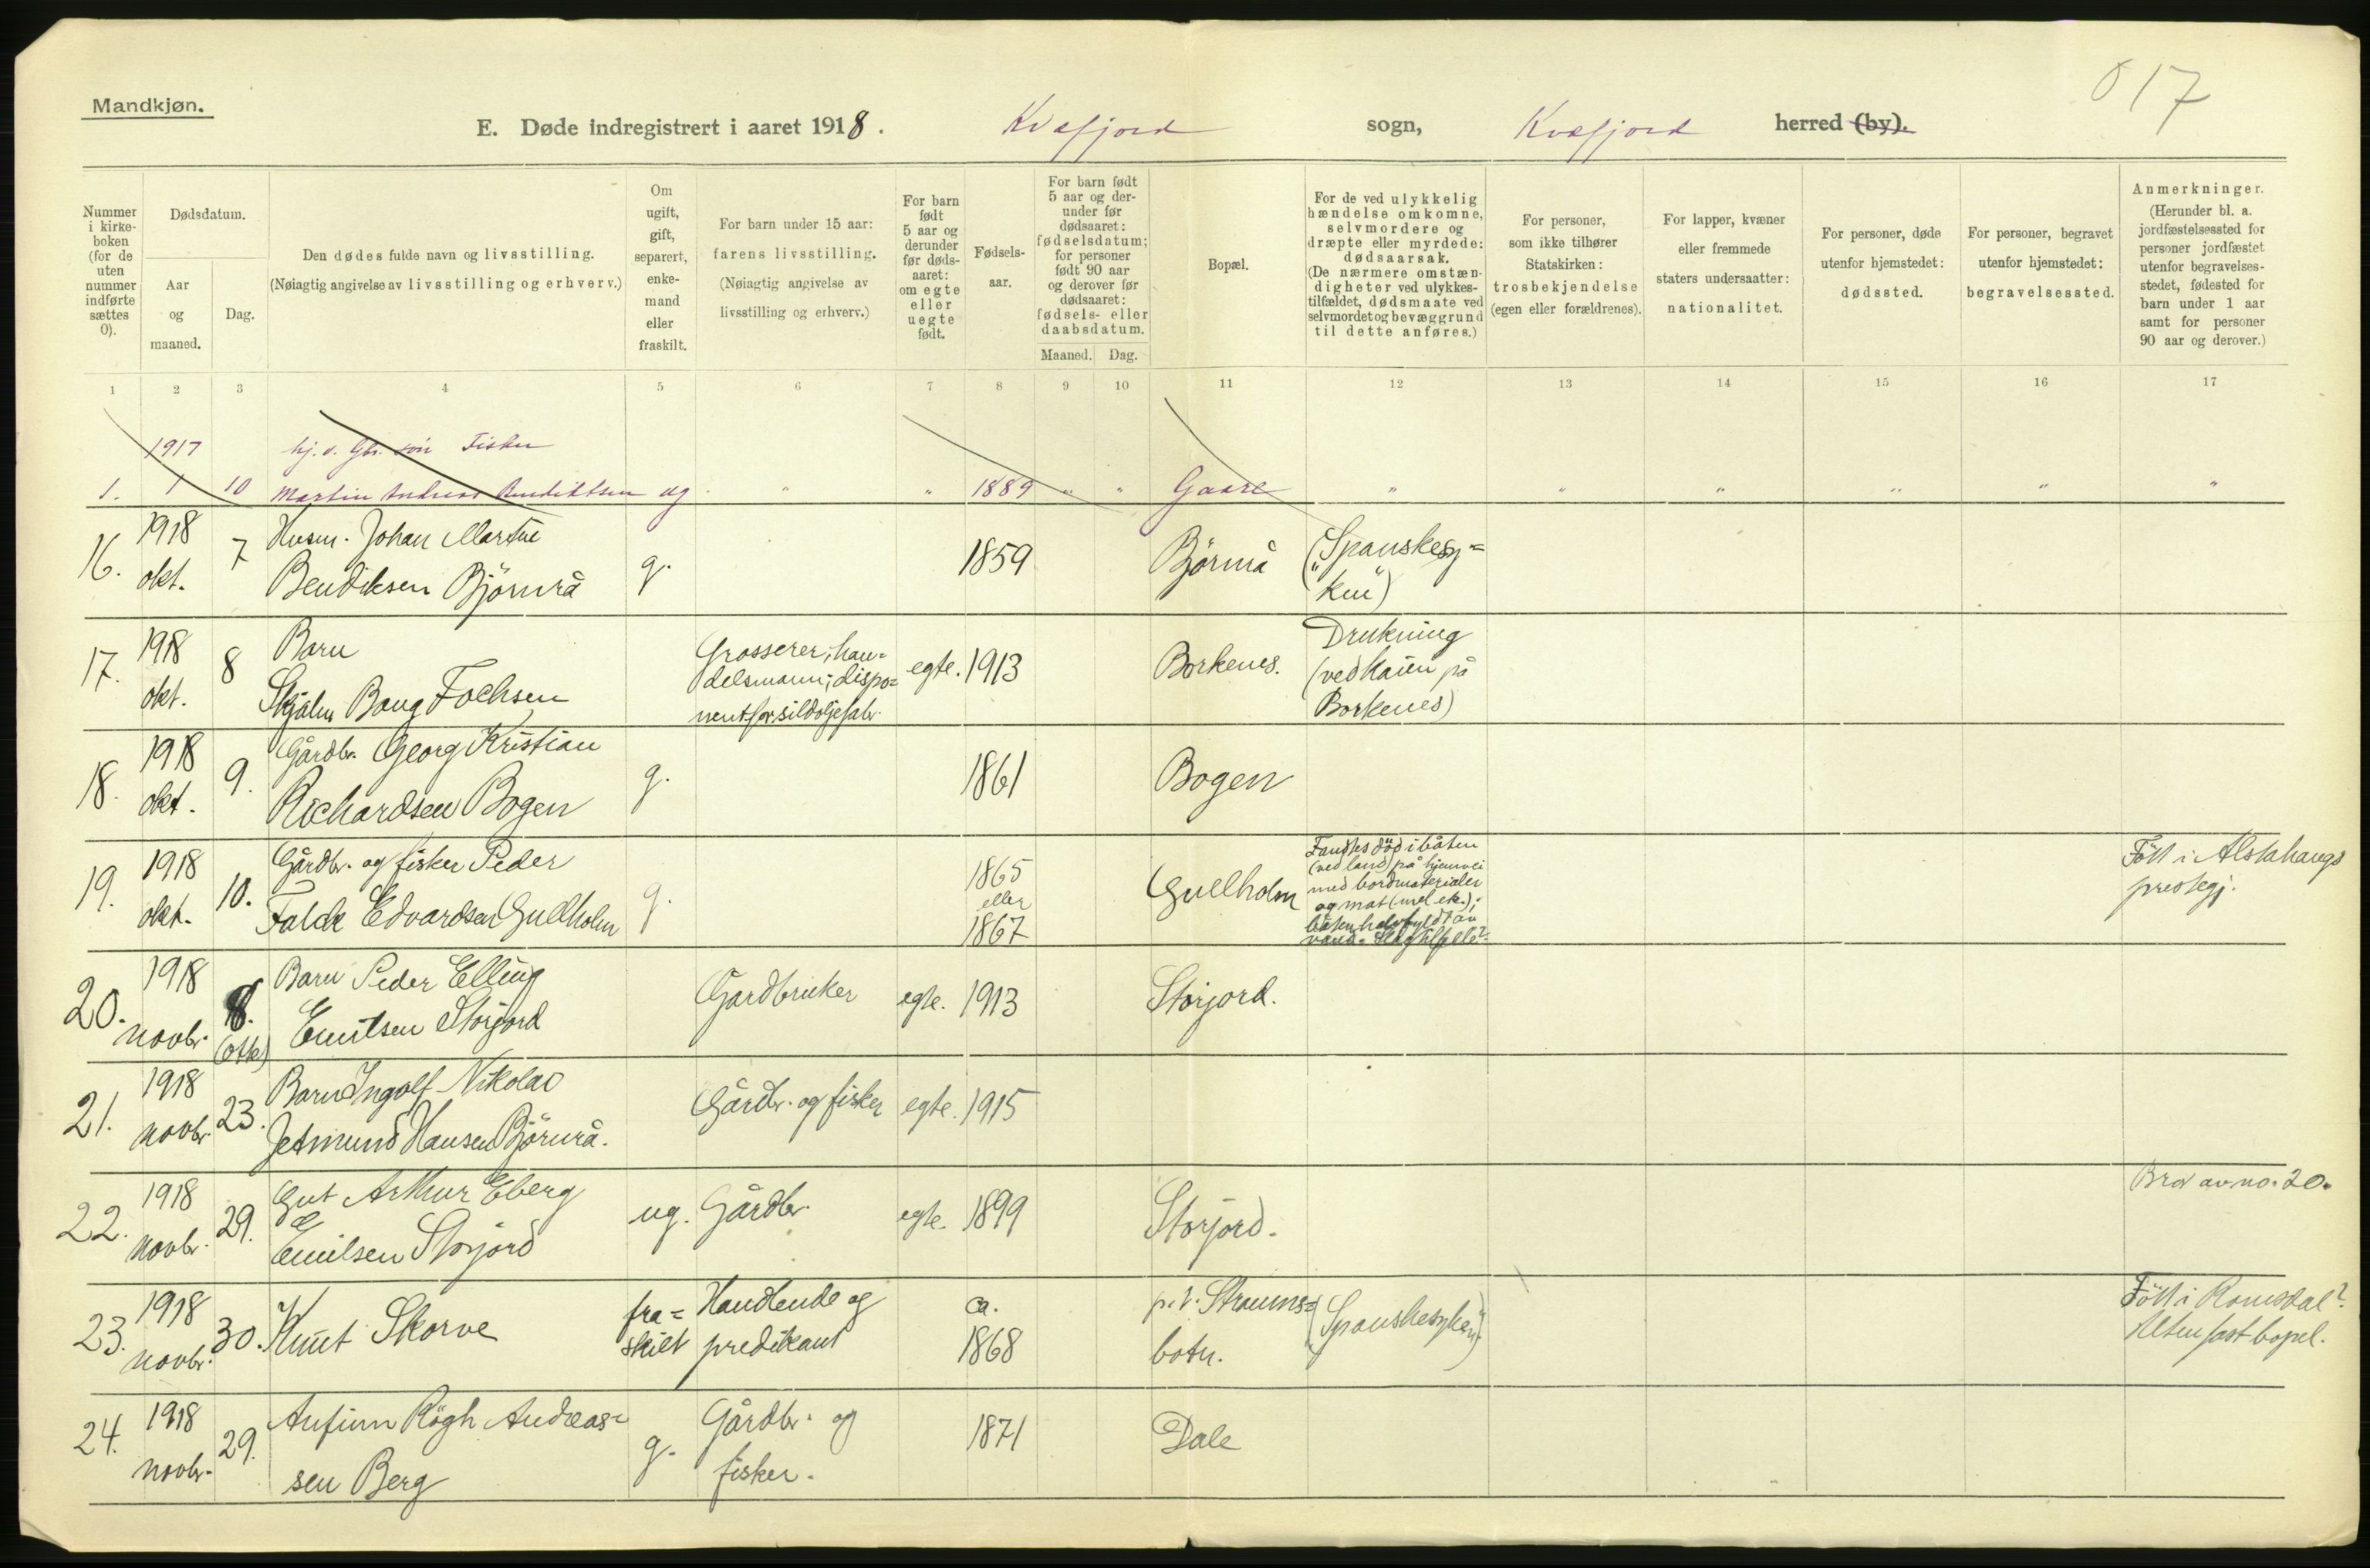 Mandkjøn.
017
E. Døde indregistrert i aaret 1918. Kvæfjord sogn, Kvæfjord herred (by).
Nummer i kirkeboken (for de uten nummer indførte sættes 0).
Dødsdatum.
Aar og maaned.
Dag.
Den dødes fulde navn og livsstilling.
(Nøiagtig angivelse av livsstilling og erhverv.)
Om ugift, gift, separert, enkemand eller fraskilt.
For barn under 15 aar: farens livsstilling.
(Nøiagtig angivelse av livsstilling og erhverv.)
For barn født 5 aar og derunder før dødsaaret: om egte eller uegte født.
Fødselsaar.
For barn født 5 aar og derunder før dødsaaret: fødselsdatum; for personer født 90 aar og derover før dødsaaret: fødsels- eller daabsdatum.
Maaned. Dag.
Bopæl.
For de ved ulykkelig hændelse omkomne, selvmordere og dræpte eller myrdede: dødsaarsak.
(De nærmere omstændigheter ved ulykkestilfældet, dødsmaate ved selvmordet og bevæggrund til dette anføres.)
For personer, som ikke tilhører Statskirken: trosbekjendelse (egen eller forældrenes).
For lapper, kvæner eller fremmede staters undersaatter: nationalitet.
For personer, døde utenfor hjemstedet: dødssted.
For personer, begravet utenfor hjemstedet: begravelsessted.
Anmerkninger.
(Herunder bl. a. jordfæstelsessted for personer jordfæstet utenfor begravelsesstedet, fødested for barn under 1 aar samt for personer 90 aar og derover.)
1 2 3 4 5 6 7 8 9 10 11 12 13 14 15 16 17
1917 hj. v. Gbr. søn Fisker
1. 1 10 Martin Andreas Bendiktsen ug " " 1889 " " Gaare " " " " " "
16. 1918 okt. 7 Husm. Johan Martin
Bendiksen Björnrå g. 1859 Björnrå ("Spanskesy=
ken")
17. 1918 okt. 8 Barn
Skjalm Bang Fochsen
Grosserer, han=
delsmann; dispo=
nent for sildoljefabr.
egte. 1913 Borkenes.
Drukning
(ved kaien på
Borkenes)
18. 1918 okt. 9. Gårdbr. Georg Kristian
Richardsen Bogen g. 1861 Bogen
19. 1918 okt. 10. Gårdbr. og fisker Peder
Falck Edvardsen Gullholm g.
1865
eller
1867
Gullholm
Fandtes död i båten
(ved land) på hjemvei
med bordmaterialer
og mat (mel etc.);
båten halvfyldt av
vand. Slagtilfelle?
Född i Alstahaugs
prestegj.
20. 1918 novbr. 8. (otte) Barn Peder Elling
Emilsen Storjord Gårdbruker egte. 1913 Storjord.
21. 1918 novbr. 23. Barn Ingolf Nikolai
Jetmund Hansen Björnrå. Gårdbr. og fisker egte. 1915
22. 1918 novbr. 29. Gut Arthur Eberg
Emilsen Storjord ug. Gårdbr. egte. 1899 Storjord. Bror av no. 20.
23. 1918 novbr. 30. Knut Skorve fra=
skilt Handlende og
predikant ca.
1868 p. t. Straums=
botn. ("Spanskesyken") Född i Romsdal?
Uten fast bopel.
24. 1918 novbr. 29. Anfinn Rögh Andreas=
sen Berg g. Gårdbr. og
fisker. 1871 Dale